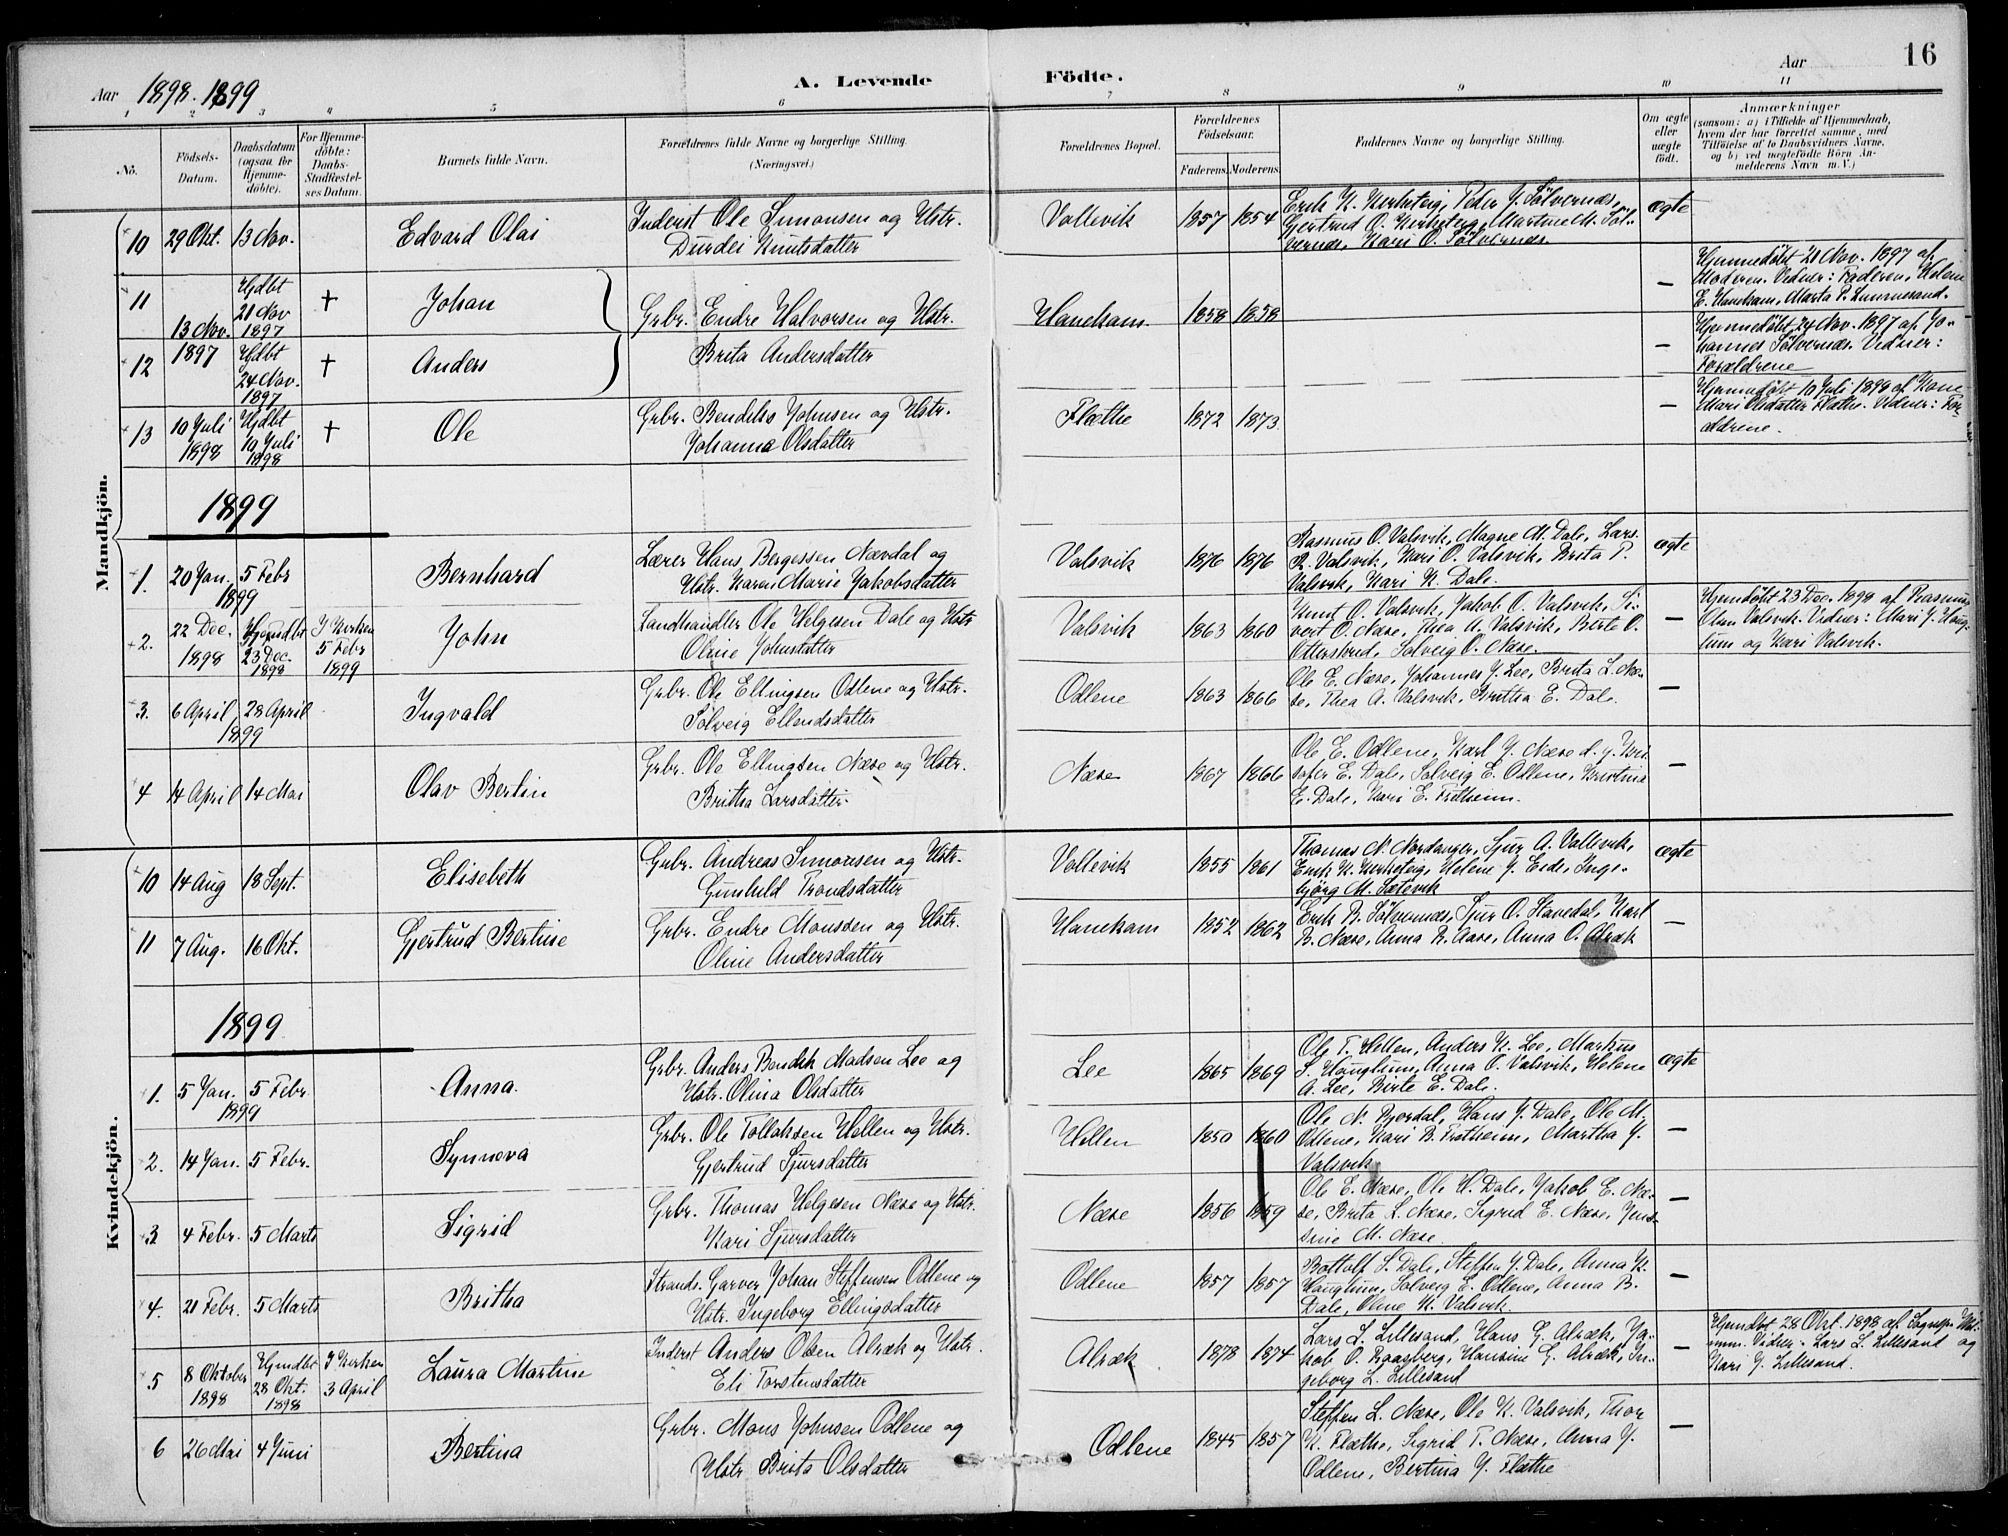 16
Aar 1898-1899
A. Levende Födte.
Aar
1 2 3 4 5 6 7 8 9 10 11
No.
Födsels-Datum.
Daabsdatum (ogsaa for Hjemme-döbte).
For Hjemme-döbte: Daabs-Stadfæstel-ses Datum.
Barnets fulde Navn.
Forældrenes fulde Navne og borgerlige Stilling. (Næringsvei.)
Forældrenes Bopæl.
Forældrenes Födselsaar.
Faderens. Moderens.
Faddernes Navne og borgerlige Stilling.
Om ægte eller uægte födt.
Anmærkninger
(saasom: a) i Tilfælde af Hjemmedaab,
hvem der har forrettet samme, med
Tilföielse af to Daabsvidners Navne,
og b) ved uægtefödte Börn An-
melderens Navn m. V.)
Mandkjön.
10 29 Okt. 13 Nov. Edvard Olai
Inderst Ole Simonsen og Hstr.
Durdei Knutsdatter
Vallevik 1857 1854
Erik K. Kirketeig, Peder J. Sölvernæs,
Gjertrud O. Kirketeig, Martine M. Söl-
vernæs, Kari O. Sölvernæs.
ægte
11 13 Nov. 1897 Hjdbt 21 Nov 1897 + Johan
12 Hjdbt 24 Nov. 1897 + Anders
Grbr. Endre Halvorsen og Hstr.
Brita Andersdatter
Hanekam. 1858 1858
—
Hjemmedöbt 21 Nov. 1897 af
Moderen. Vidner: Faderen, Helene
E. Hanekam, Marta P.
—
Hjemmedöbt 24 Nov. 1897 af Jo-
hannes Sölvernæs. Vidner:
Forældrene
13 10 Juli 1898 Hjdbt 10 Juli 1898 + Ole
Grbr. Bendiks Johnsen og Hstr.
Johanna Olsdatter
Flæthe 1872 1873
—
Hjemmedöbt 10 Juli 1898 af Kone
Mari Olsdatter Flæthe. Vidner: For-
ældrene.
1899
1. 20 Jan. 1899 5 Febr Bernhard
Lærer Hans Bergessen Nævdal og
Hstr. Karen Marie Jakobsdatter
Valsvik 1876 1876
Rasmus O. Valsvik, Magne M. Dale, Lars
R. Valsvik, Kari O. Valsvik, Brita P.
Valsvik, Kari K. Dale.
ægte
2. 22 Dec. 1898 Hjemdbt 23 Dec. 1898 I Kirken 5 Febr 1899 John
Landhandler Ole Helgesen Dale og Hstr
Oline Johnsdatter
Valsvik 1863 1860
Knut O. Valsvik, Jakob O. Valsvik, Si-
vert O. Næse, Thea A. Valsvik, Berte O.
Otterskred, Solveig O. Næse.
—
Hjemdöbt 23 Dec. 1898 af Rasmus
Olsen Valsvik. Vidner: Mari J. Haug-
lum og Kari Valsvik.
3. 6 April 28 April 1899 Ingvald
Grbr. Ole Ellingsen Odlene og Hstr.
Solveig Ellendsdatter
Odlene 1863 1866
Ole E. Næse, Johannes J. Lee, Brita L. Næ-
se, Thea A. Valsvik, Britha E. Dale.
—
4 14 April 14 Mai Olav Berlin
Grbr. Ole Ellingsen Næse og Hstr.
Britha Larsdatter.
Næse 1867 1866
Ole E. Odlene, Karl J. Næse d. y. Kri-
stofer E. Dale, Solveig E. Odlene, Kristina
E. Dale, Kari E. Fretheim.
—
Kvindekjön.
10 14 Aug 18 Sept. Elisebeth
Grbr. Andreas Simonsen og Hstr.
Gunhild Trondsdatter
Vallevik 1855 1861
Thomas N. Nordanger, Sjur A. Vallevik,
Erik K. Kirketeig, Helene J. Eide, Inge-
björg M. Sætevik
ægte
11 7 Aug. 16 Okt. Gjertrud Bertine
Grbr. Endre Monssen og Hstr.
Oline Andersdatter
Hanekam 1852 1862
Erik B. Sölvernæs, Sjur O. Stavedal, Karl
B. Næse, Anna R. Aase, Anna O. Alræk
—
1899
1. 5 Jan. 1899 5 Febr Anna.
Grbr. Anders Bendik Madsen Lee og
Hstr. Olina Olsdatter
Lee 1865 1869
Ole T. Hellen, Anders K. Lee, Markus
S. Hauglum, Anna O. Valsvik, Helene
A. Lee, Birte E. Dale.
ægte
2. 14 Jan. 5 Febr. Synneva
Grbr. Ole Tollaksen Hellen og Hstr.
Gjertrud Sjursdatter
Hellen 1850 1860
Ole N. Bjordal, Hans J. Dale, Ole M.
Odlene, Kari B. Fretheim, Martha J.
Valsvik
—
3 4 Febr. 5 Marts Sigrid
Grbr. Thomas Helgesen Næse og Hstr.
Kari Sjursdatter
Næse 1856 1859
Ole E. Næse, Ole H. Dale, Jakob E. Næ-
se, Brita L. Næse, Sigrid E. Næse, Jens-
sine M. Næse.
—
4. 21 Febr. 5 Marts Britha
Strands. Garver Johan Steffensen Odlene og
Hstr. Ingeborg Ellingsdatter
Odlene 1857 1857
Bottolf S. Dale, Steffen J. Dale, Anna K.
Hauglum, Solveig E. Odlene, Anna B.
Dale, Oline K. Valsvik.
—
5 8 Oktober 1898 Hjmdbt 28 Okt. 1898 I Kirken 3 April Laura Martine
Inderst Anders Olsen Alræk og Hstr.
Eli Torstensdatter
Alræk 1878 1874
Lars L. Lillesand, Hans G. Alræk, Ja-
kob O. Raasberg, Hansine G. Alræk, In-
geborg L. Lillesand
—
Hjemdbt 28 Okt. 1898 af Sognepr.
Vidner: Lars L. Lillesand og
Kari J. Lillesand.
6 26 Mai 4 Juni Bertina
Grbr. Mons Johnsen Odlene og
Hstr Brita Olsdatter
Odlene 1845 1857
Steffen L. Næse, Ole K. Valsvik, Thor
K. Flæthe, Sigrid T. Næse, Anna J.
Odlene, Bertina J. Flæthe
—